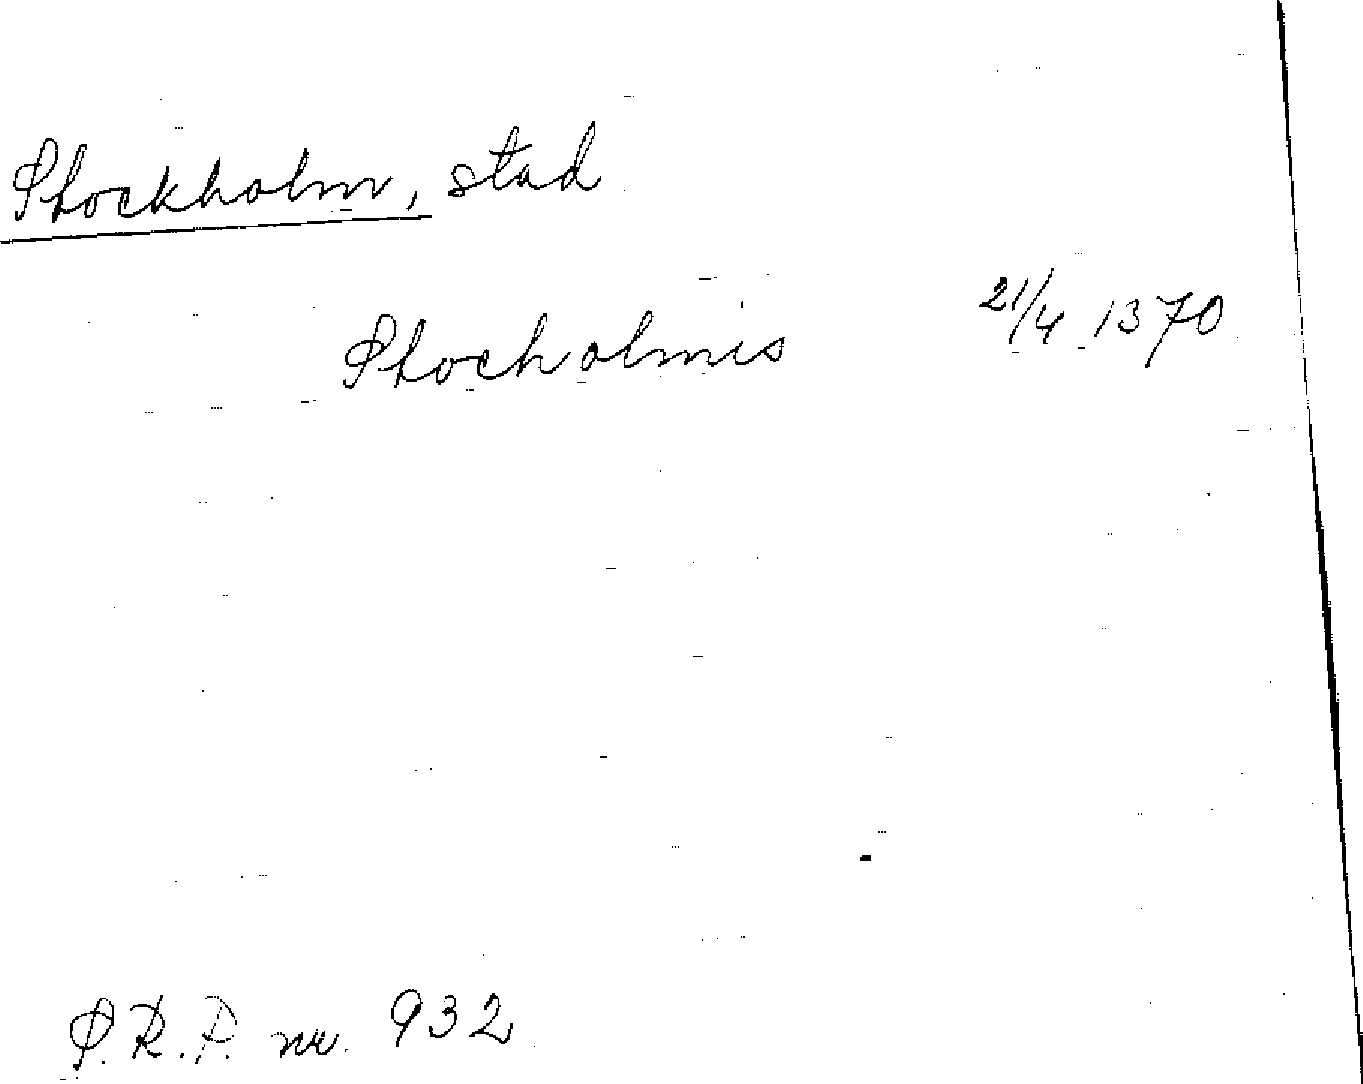 Stockholm, stad
Stocholmis 21/4 1370
S.R.P. nr. 932